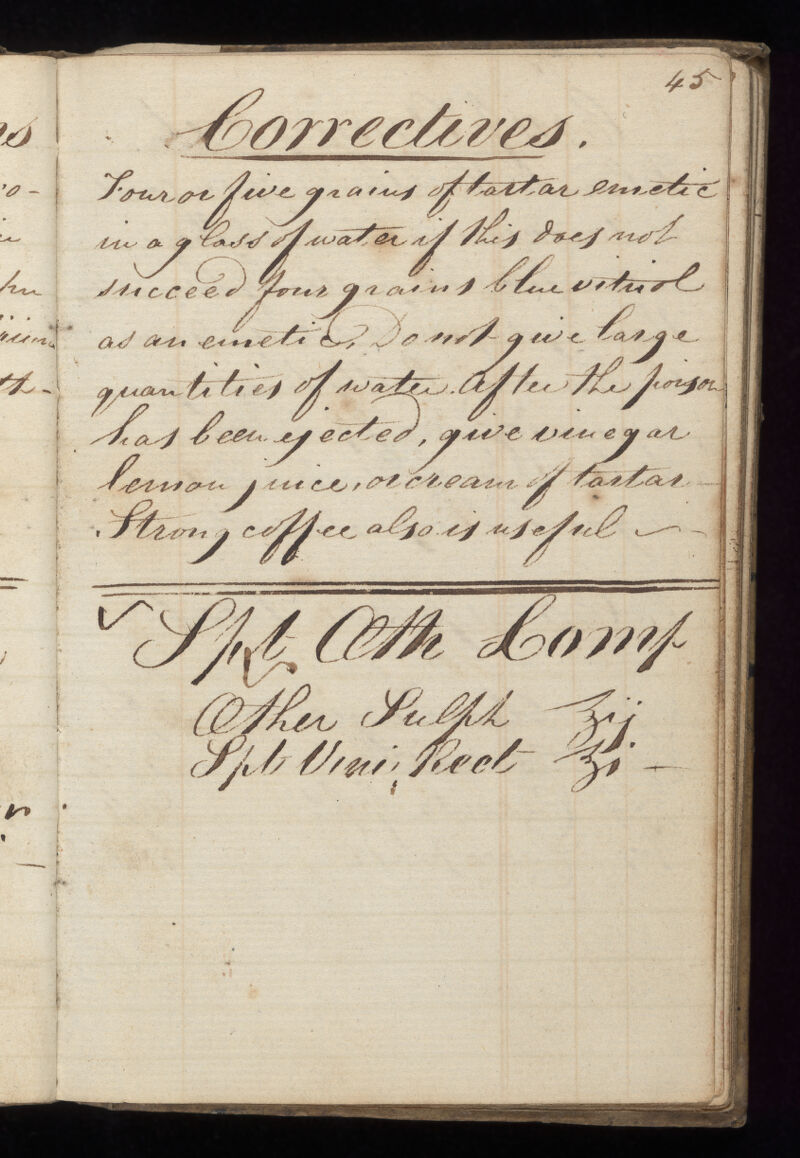 45
Correctives.
Four or five grains of tartar emetic
in a glass of water if this does not
succeed four grains blue vitriol
as an emetic, Do not give large
quantities of water. After the poison
has been ejected, give vinegar
lemon juice, or cream of tartar
Strong coffee also is useful
Spt Œth Comp
Æther Sulph ʒij
Spt Vini, Rect ʒi